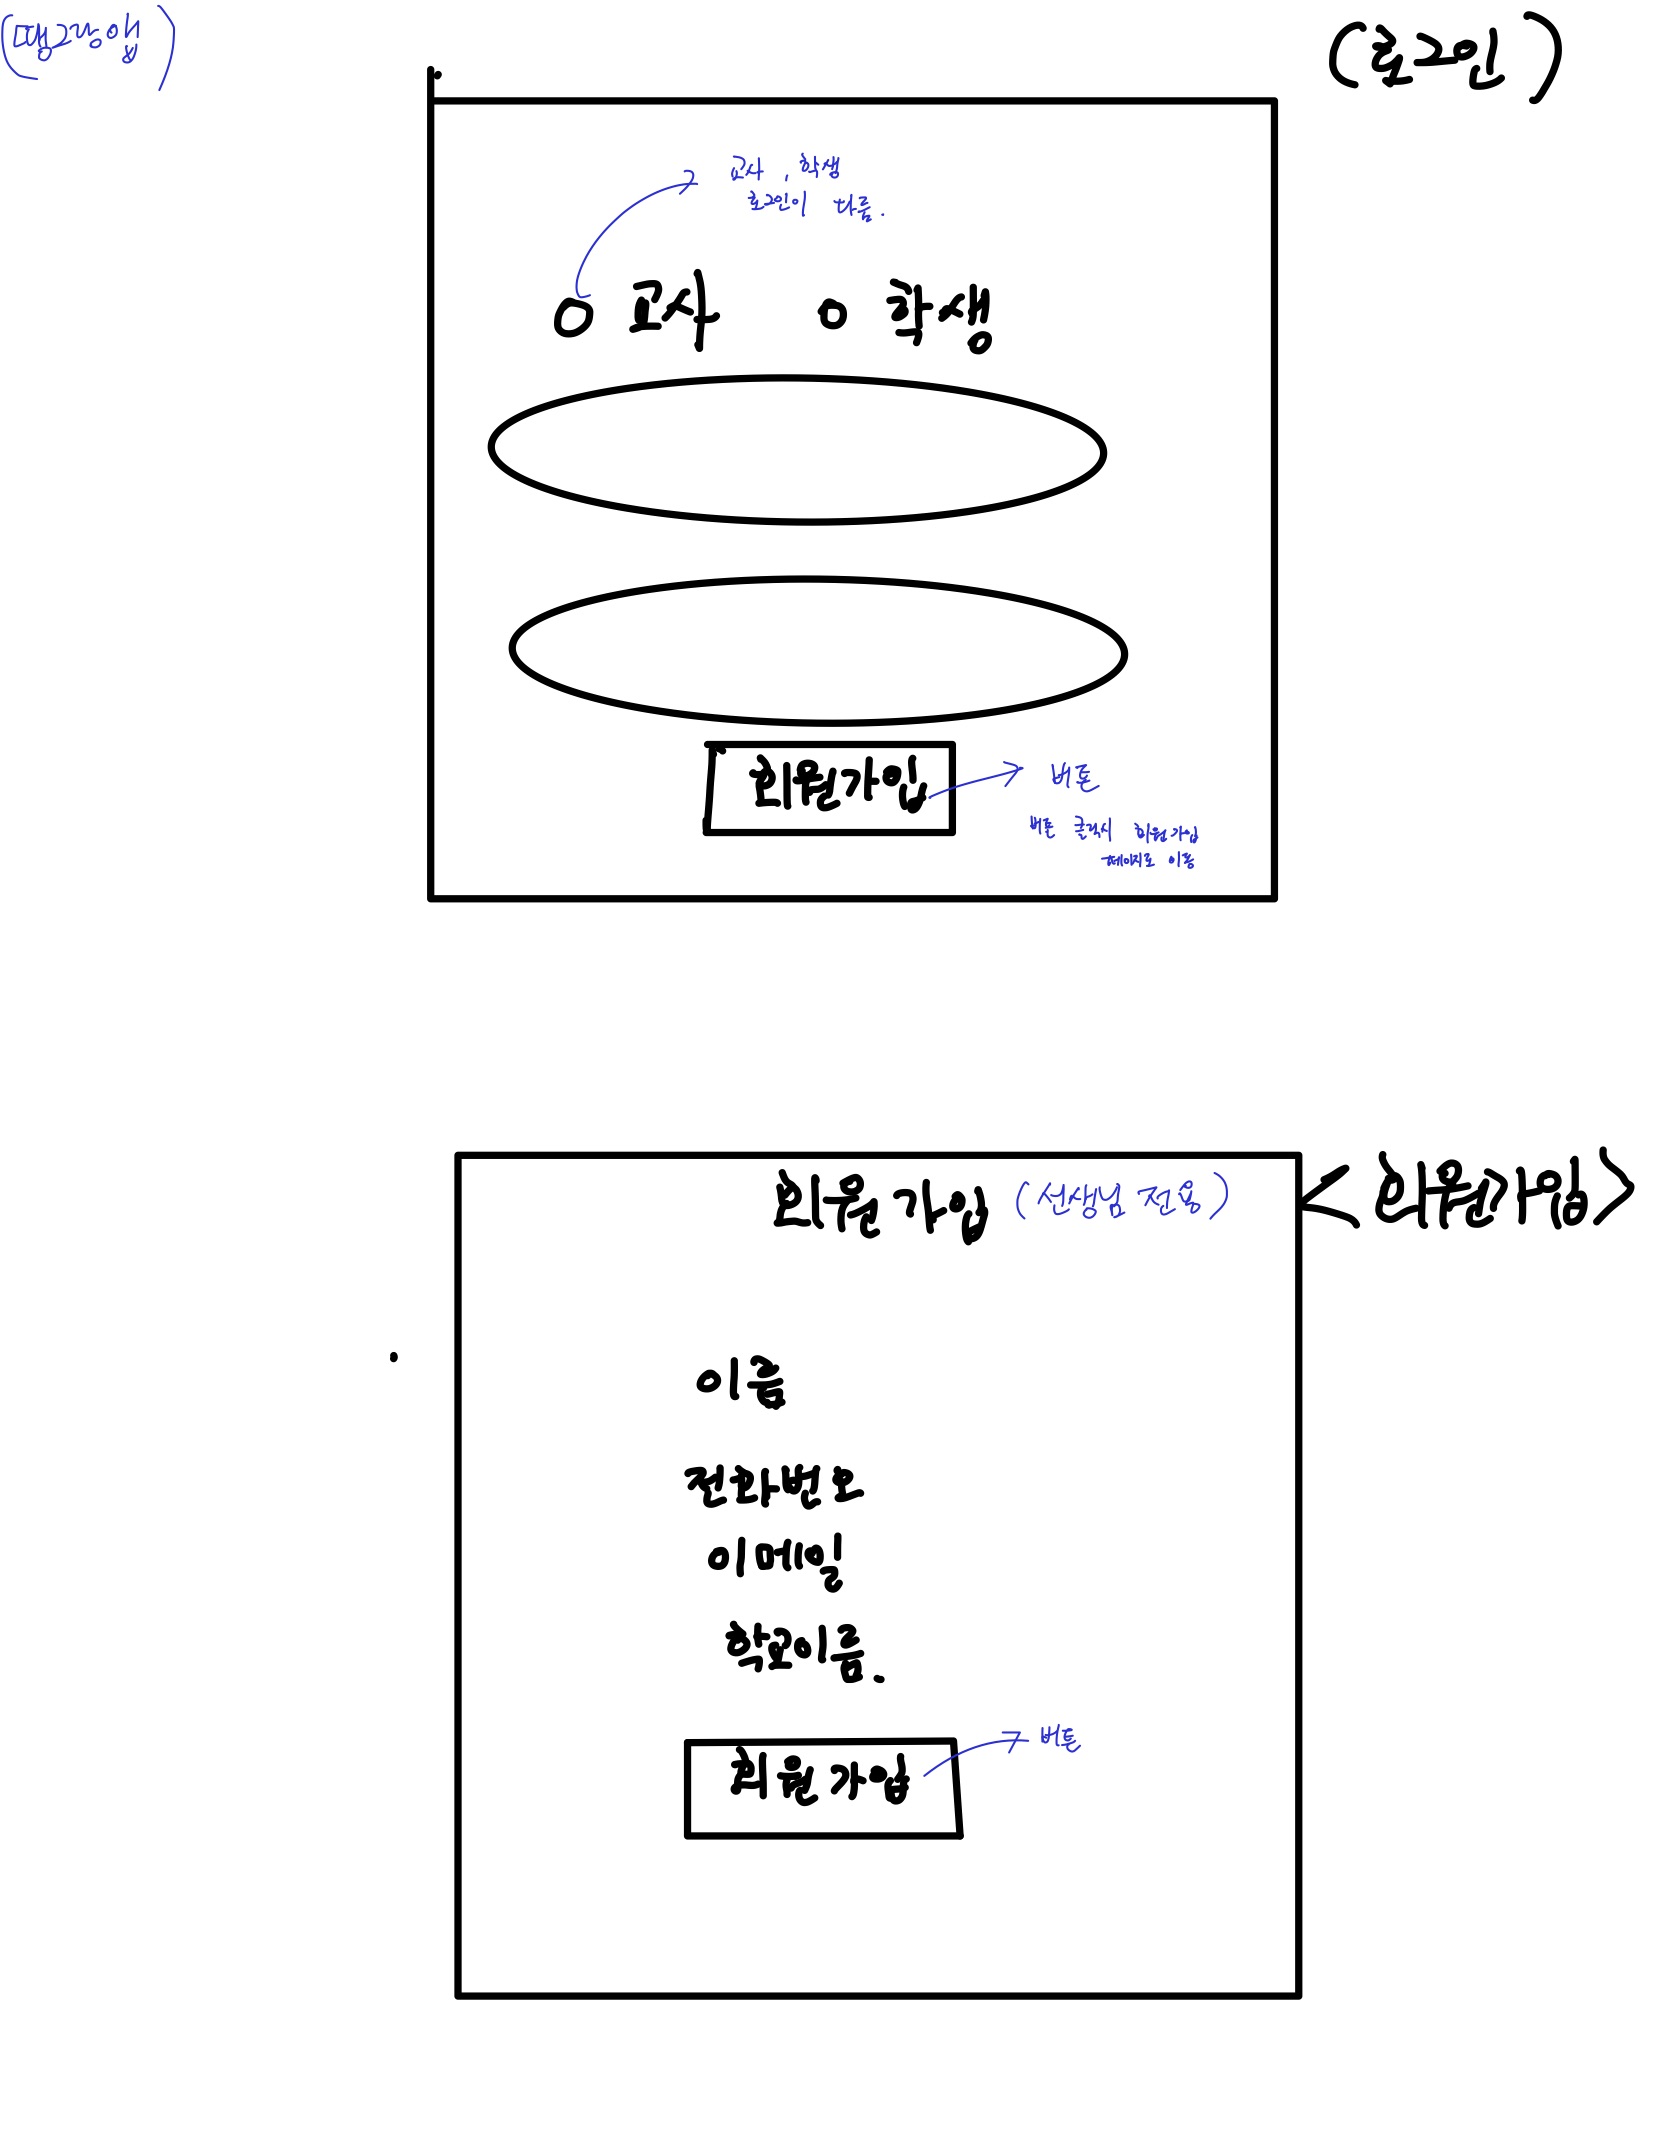 (땡그랑 앱)
(로그인)
교사, 학생
로그인이 다름.
교사 학생
회원가입
버튼
버튼 클릭시 회원가입
페이지로 이동
회원가입 (선생님 전용)
<회원가입>
이름
전화번호
이메일
학교이름.
회원가입
버튼